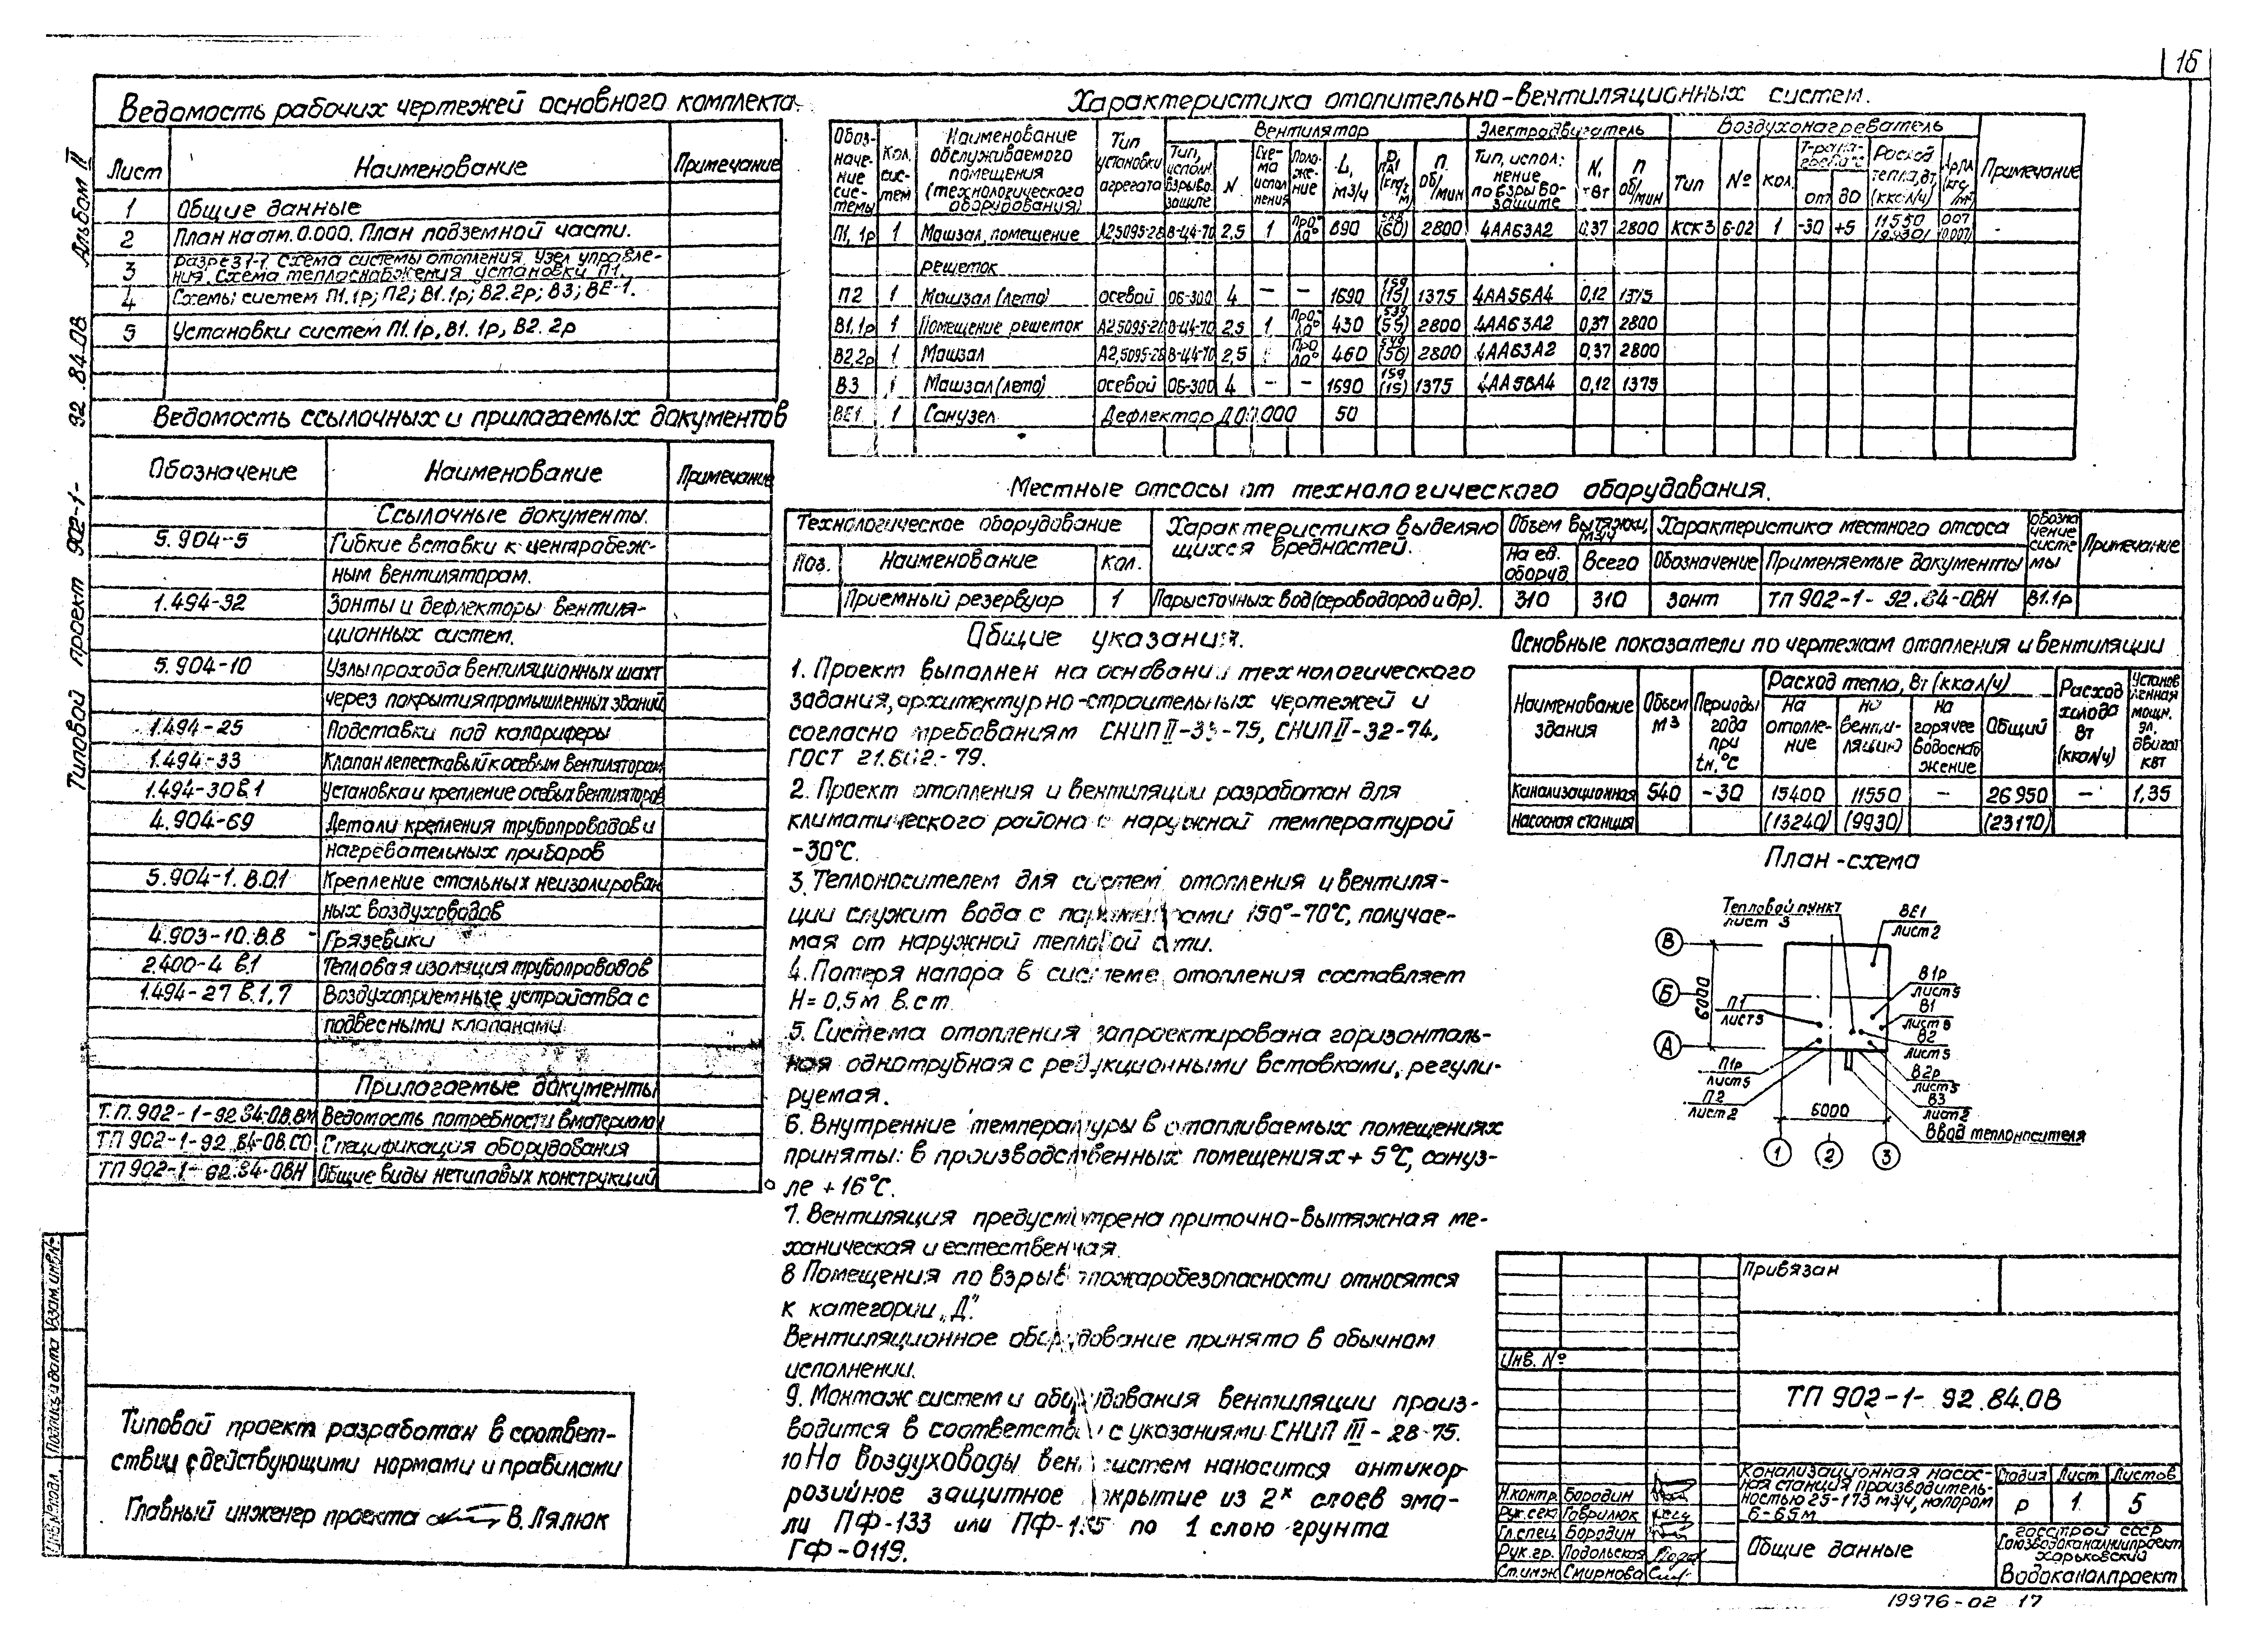 16
Альбом II
Типовой проект 902-1-92.84.ОВ
Ведомость рабочих чертежей основного комплекта
Лист Наименование Примечание
1 Общие данные
2 План на отм. 0.000. План подземной части.
3 Разрез 1-1. Схема системы отопления. Узел управле-
ния. Схема теплоснабжения установки П1.
4 Схемы систем П1.1р; П2; В1.1р; В2.2р; В3; ВЕ-1.
5 Установки систем П1.1р, В1.1р, В2.2р
Ведомость ссылочных и прилагаемых документов
Обозначение Наименование Примечание
Ссылочные документы.
5.904-5 Гибкие вставки к центробеж-
ным вентиляторам.
1.494-32 Зонты и дефлекторы вентиля-
ционных систем.
5.904-10 Узлы прохода вентиляционных шахт
через покрытия промышленных зданий
1.494-25 Подставки под калориферы
1.494-33 Клапан лепестковый к осевым вентиляторам
1.494-30 В.1 Установка и крепление осевых вентиляторов
4.904-69 Детали крепления трубопроводов и
нагревательных приборов
5.904-1. В.0.1 Крепление стальных неизолирован
ных воздуховодов
4.903-10.В.8 Грязевики
2.400-4 В.1 Тепловая изоляция трубопроводов
1.494-27 В.1,7 Воздухоприемные устройства с
подвесными клапанами
Прилагаемые документы
Т.П.902-1-92.84-ОВ.ВМ Ведомость потребности в материалах
ТП 902-1-92.84-ОВ.СО Спецификация оборудования
ТП 902-1-92.84-ОВН Общие виды нетиповых конструкций
Типовой проект разработан в соответ-
ствии с действующими нормами и правилами
Главный инженер проекта В. Лялюк
Взам. инв.№
Подпись и дата
Инв.№ подл.
Характеристика отопительно-вентиляционных систем.
Обоз-
наче-
ние
сис-
темы
Кол.
сис-
тем
Наименование
обслуживаемого
помещения
(технологического
оборудования)
Тип
установки
агрегата
Вентилятор
Тип,
исполн.
взрыво-
защите
N
Схе-
ма
испол
нения
Поло-
же-
ние
L,
м3/ч
Р,
Па
(кгс/
м)
П
об/
мин
Электродвигатель
Тип, испол-
нение
по взрыво-
защите
N,
кВт
П
об/
мин
Воздухонагреватель
Тип № Кол.
Т-ра на-
грева °С
от до
Расход
тепла, Вт
(ккал/ч)
Примечание
П1, 1р 1 Машзал, помещение А2,5095-2В В-Ц4-70 2,5 1 Про° Л0° 890 588 (60) 2800 4АА63А2 0,37 2800 КСК3 6-02 1 -30 +5 11550 (9930) 0,07 (0,007) -
решеток
П2 1 Машзал (лето) осевой 06-300 4 — — 1690 159 (15) 1375 4АА56А4 0,12 1375
В1.1р 1 Помещение решеток А2,5095-2В В-Ц4-70 2,5 1 Про° Л0° 430 539 (55) 2800 4АА63А2 0,37 2800
В2.2р 1 Машзал А2,5095-2В В-Ц4-70 2,5 Про Л0° 460 549 (56) 2800 4АА63А2 0,37 2800
В3 1 Машзал (лето) осевой 06-300 4 — — 1690 159 (15) 1375 4АА56А4 0,12 1375
ВЕ1 1 Санузел Дефлектор Д 00.000 50
Местные отсосы от технологического оборудования.
Технологическое оборудование
Поз. Наименование Кол.
Характеристика выделяю
щихся вредностей.
Объем вытяжки,
м3/ч
На ед.
оборуд
Всего
Характеристика местного отсоса
Обозначение Применяемые документы
Обозна
чение
систе
мы
Примечание
Приемный резервуар 1 Пары сточных вод (сероводород и др). 310 310 зонт ТП 902-1-92.84-ОВН В1.1р
Общие указания.
1. Проект выполнен на основании технологического
задания, архитектурно-строительных чертежей и
согласно требованиям СНиП II-33-75, СНиП II-32-74,
ГОСТ 21.602-79.
2. Проект отопления и вентиляции разработан для
климатического района с наружной температурой
-30°С.
3. Теплоносителем для систем отопления и вентиля-
ции служит вода с параметрами 150°-70°С, получае-
мая от наружной тепловой сети.
4. Потеря напора в системе отопления составляет
Н=0,5м в.ст.
5. Система отопления запроектирована горизонталь-
ная однотрубная с редукционными вставками, регули-
руемая.
6. Внутренние температуры в отапливаемых помещениях
приняты: в производственных помещениях +5°С, сануз-
ле +16°С.
7. Вентиляция предусмотрена приточно-вытяжная ме-
ханическая и естественная.
8 Помещения по взрывопожаробезопасности относятся
к категории „Д".
Вентиляционное оборудование принято в обычном
исполнении.
9. Монтаж систем и оборудования вентиляции произ-
водится в соответствии с указаниями СНиП III-28-75.
10 На воздуховоды вентсистем наносится антикор
розийное защитное покрытие из 2х слоев эма-
ли ПФ-133 или ПФ-115 по 1 слою грунта
ГФ-0119.
Основные показатели по чертежам отопления и вентиляции
Наименование
здания
Объем
м3
Периоды
года
при
tн.°С
Расход тепло, Вт (ккал/ч)
На
отопле-
ние
на
венти-
ляцию
на
горячее
водоснаб
жение
Общий
Расход
холода
Вт
(ккал/ч)
Установ
ленная
мощн.
эл.
двигат
кВт
Канализационная 540 -30 15400 11550 — 26950 — 1,35
насосная станция (13240) (9930) (23170)
План-схема
Тепловой пункт
лист 3
ВЕ1
лист 2
В1р
лист 5
В1
лист 5
В2
лист 5
В2р
лист 5
В3
лист 2
Ввод теплоносителя
П1
лист 5
П1р
лист 5
П2
лист 2
В
Б
А
6000
6000
1 2 3
Привязан
Инв. №
ТП 902-1-92.84.ОВ
Канализационная насос-
ная станция производитель-
ностью 25-173 м3/ч, напором
6-65м
Стадия Лист Листов
Р 1 5
Н.контр. Бородин
Рук.сек Гаврилюк
Гл.спец Бородин
Рук.гр. Подольская
Ст.инж Смирнова
Общие данные
Госстрой СССР
Союзводоканалниипроект
Харьковский
Водоканалпроект
19976-02 17